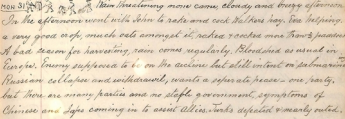 MON 31 Rain threatening none came, cloudy and busy afternoon
In the afternoon went with John to rake and cock Walkers hay, Eva helping.
a very good crop, much oats amongst it, raked & cocked more than 3/4 paddock
A bad season for harvesting, rain comes regularly. Bloodshed as usual in
Europe. Enemy supposed to be on the decline but still intent on submarine
Russian collapse and withdrawl, wants a seperate peace - one party,
but there are many parties and no stable government, symptoms of
Chinese and Japs coming in to assist Allies. Turks defeated & nearly outed.